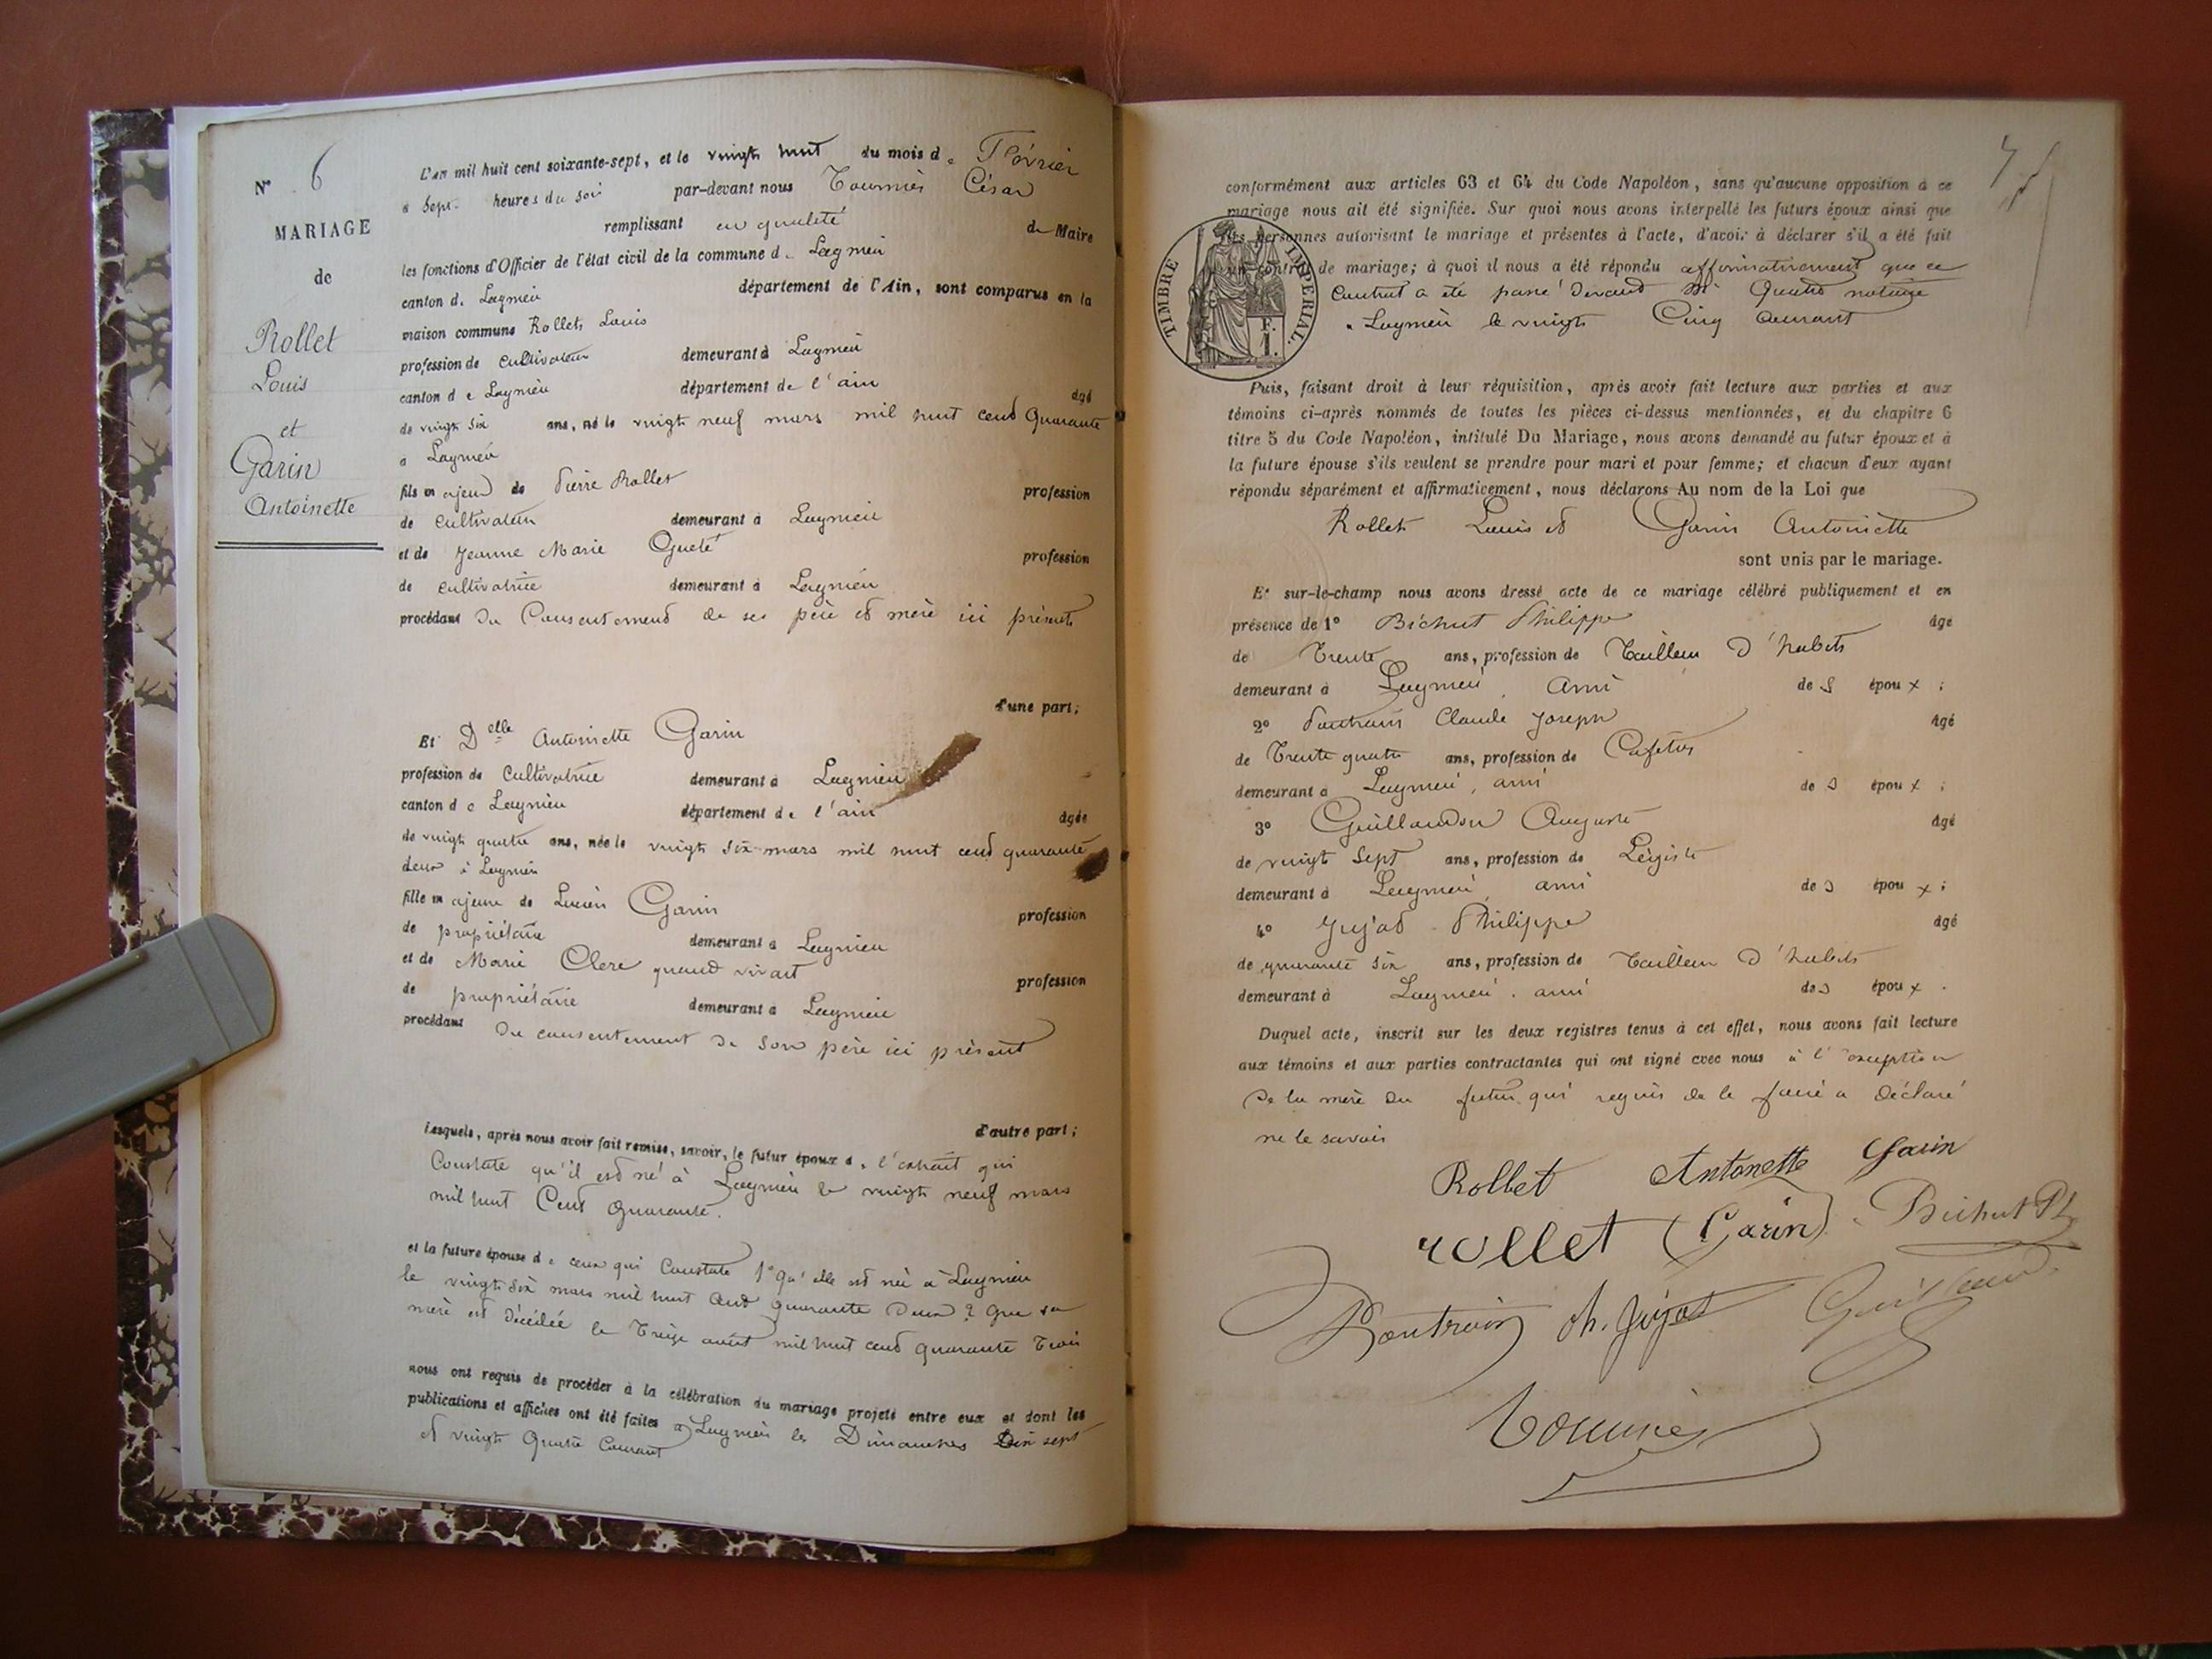 N° 6
MARIAGE
de
Rollet
Louis
et
Garin
Antoinette
L'an mil huit cent soixante-sept, et le vingt huit du mois de Février
à sept heures du soir par-devant nous Tournier César
remplissant en qualité de Maire
les fonctions d'Officier de l'état civil de la commune de Lagnieu
canton de Lagnieu département de l'Ain, sont comparus en la
maison commune Rollet Louis
profession de cultivateur demeurant à Lagnieu
canton de Lagnieu département de l'ain âgé
de vingt six ans, né le vingt neuf mars mil huit cent quarante
à Lagnieu
fils majeur de Pierre Rollet profession
de cultivateur demeurant à Lagnieu
et de Jeanne Marie profession
de cultivatrice demeurant à Lagnieu
procédant du Consentement de ses père et mère ici présents
d'une part;
Et Delle Antoinette Garin
profession de Cultivatrice demeurant à Lagnieu
canton de Lagnieu département de l'ain âgée
de vingt quatre ans, née le vingt six mars mil huit cent quarante
deux à Lagnieu
fille majeure de Lucien Garin profession
de propriétaire demeurant à Lagnieu
et de Marie Clerc quand vivait profession
de propriétaire demeurant à Lagnieu
procédant du consentement de son père ici présent
d'autre part;
Lesquels, après nous avoir fait remise, savoir, le futur époux de l'extrait qui
Constate qu'il est né à Lagnieu le vingt neuf mars
mil huit Cent quarante.
et la future épouse de ceux qui Constate 1° qu'elle est née à Lagnieu
le vingt six mars mil huit cent quarante deux 2 que sa
mère est décédée le treize août mil huit cent quarante trois
nous ont requis de procéder à la célébration du mariage projeté entre eux et dont les
publications et affiches ont été faites à Lagnieu les Dimanches Dix sept
et vingt quatre Courant
conformément aux articles 63 et 64 du Code Napoléon, sans qu'aucune opposition à ce
mariage nous ait été signifiée. Sur quoi nous avons interpellé les futurs époux ainsi que
les personnes autorisant le mariage et présentes à l'acte, d'avoir à déclarer s'il a été fait
un contrat de mariage; à quoi il nous a été répondu affirmativement que ce
Contrat a été passé devant Me notaire
à Lagnieu le vingt Cinq Courant
TIMBRE IMPERIAL.
F.
1.
Puis, faisant droit à leur réquisition, après avoir fait lecture aux parties et aux
témoins ci-après nommés de toutes les pièces ci-dessus mentionnées, et du chapitre 6
titre 5 du Code Napoléon, intitulé Du Mariage, nous avons demandé au futur époux et à
la future épouse s'ils veulent se prendre pour mari et pour femme; et chacun d'eux ayant
répondu séparément et affirmativement, nous déclarons Au nom de la Loi que
Rollet Louis et Garin Antoinette
sont unis par le mariage.
Et sur-le-champ nous avons dressé acte de ce mariage célébré publiquement et en
présence de 1° Bichut Philippe âgé
de Trente ans, profession de Tailleur d'habits
demeurant à Lagnieu, ami des époux;
2° Claude Joseph âgé
de Trente quatre ans, profession de Cafetier
demeurant à Lagnieu, ami des époux;
3° Auguste âgé
de vingt sept ans, profession de Légiste
demeurant à Lagnieu, ami des époux;
4° Jujat Philippe âgé
de quarante six ans, profession de Tailleur d'habits
demeurant à Lagnieu, ami des époux.
Duquel acte, inscrit sur les deux registres tenus à cet effet, nous avons fait lecture
aux témoins et aux parties contractantes qui ont signé avec nous à l'exception
de la mère du futur qui requis de le faire a déclaré
ne le savoir
Rollet Antonette Garin
rollet Garin Bichut Ph
Ph. Jujat
Tournier